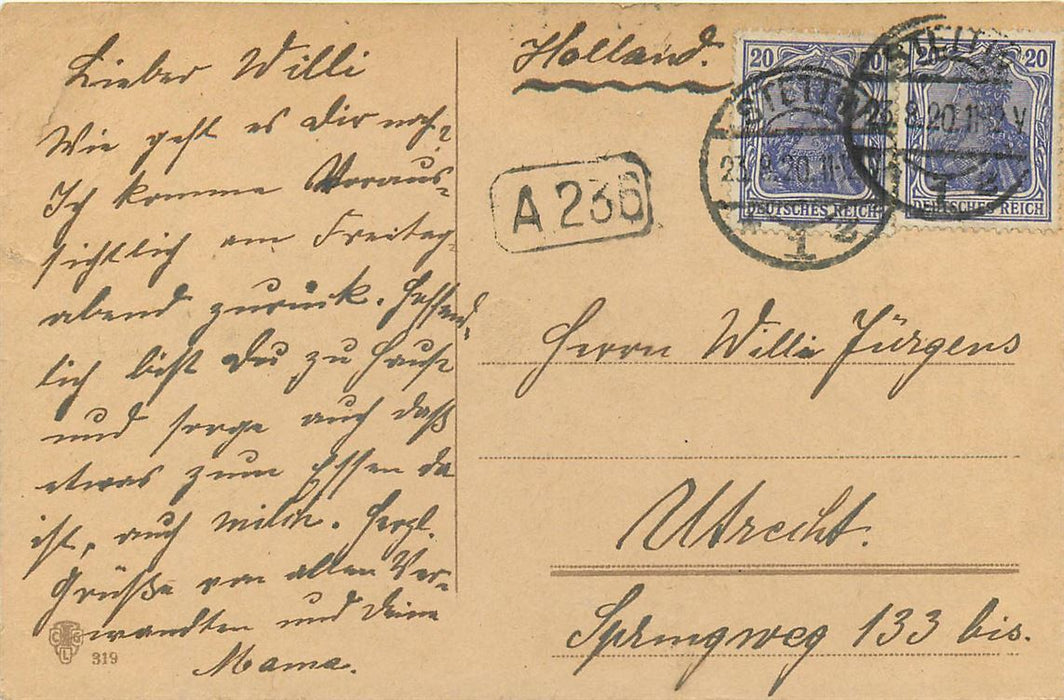 Lieber Willi
Wie geht es Dir noch?
Ich komme Voraus-
sichtlich am Freitag-
abend zurück. Hoffend-
lich bist Du zu Haus
und sorge auch daß
etwas zum Essen da
ist, auch Milch. Herzl.
Grüße von allen Ver-
wandten und Deine
Mama.
C G L
319
Holland.
A 236
20
20
20
DEUTSCHES REICH
DEUTSCHES REICH
STETTIN
23.9.20.11-12V
1
STETTIN
23.9.20.11-12V
1
Herrn Willi Jürgens
Utrecht.
Springweg 133 bis.